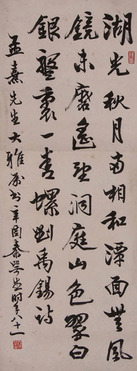 湖光秋月兩相和潭面無風
鏡未磨遙望洞庭山色翠白
銀盤裏一青螺劉禹錫詩
孟熹先生大雅 辛酉春 年八十一